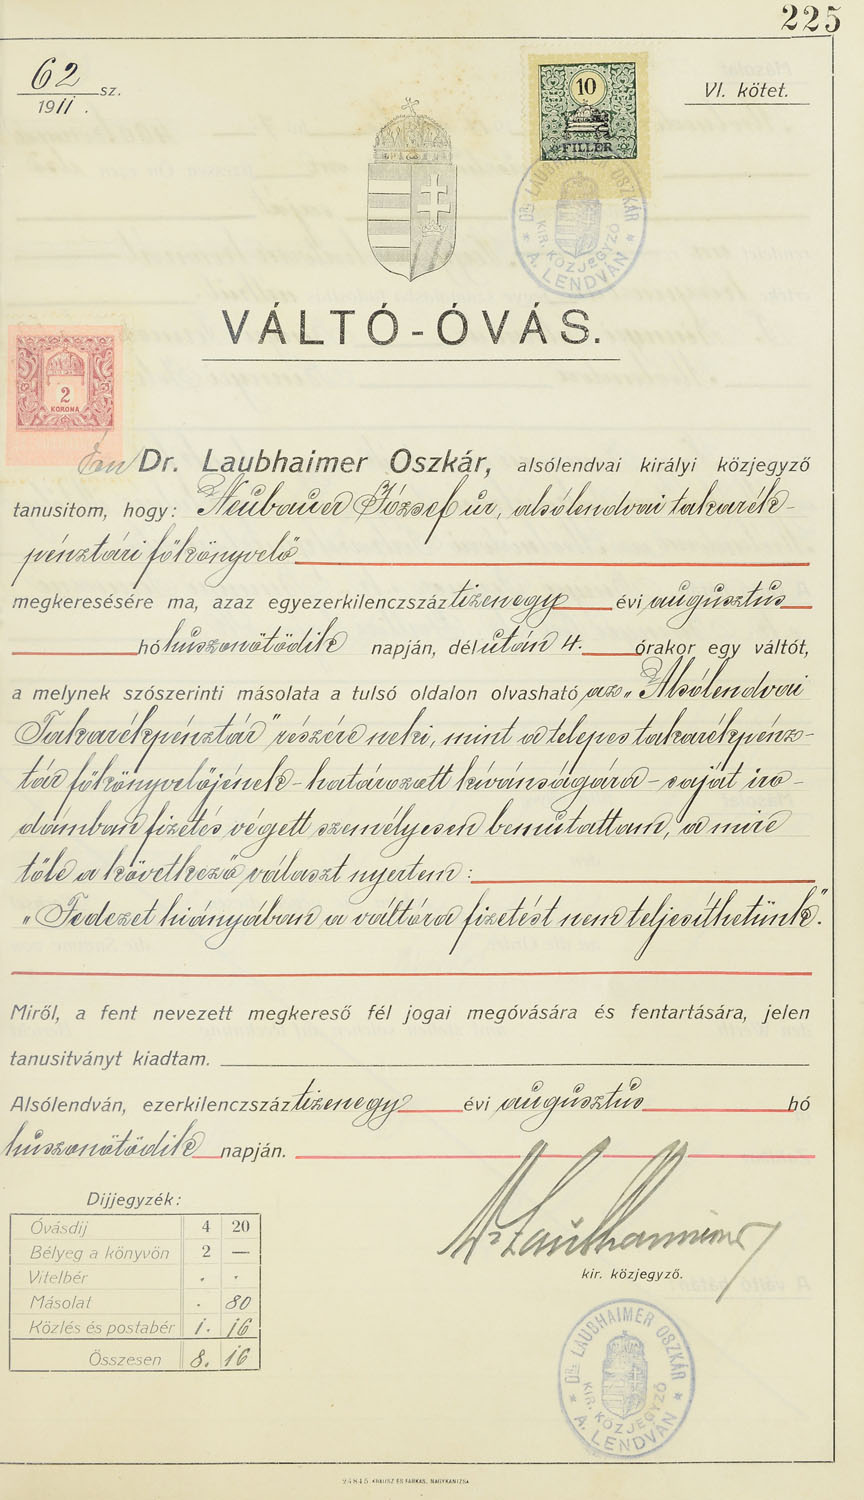 225
62 sz.
1911.
VI. kötet.
10
FILLÉR
DR. LAUBHAIMER OSZKÁR
KIR. KÖZJEGYZŐ
* A. LENDVÁN *
VÁLTÓ-ÓVÁS.
2
KORONA
Én Dr. Laubhaimer Oszkár, alsólendvai királyi közjegyző
tanusitom, hogy: Neubauer József úr, alsólendvai takarék-
pénztári főkönyvelő
megkeresésére ma, azaz egyezerkilenczszáz tizenegy évi augusztus
hó huszonötödik napján, délután 4. órakor egy váltót,
a melynek szószerinti másolata a tulsó oldalon olvasható az „Alsólendvai
Takarékpénztár" részére neki, mint a telepes takarékpénz-
tár főkönyvelőjének - határozott kívánságára - saját iro-
dámban fizetés végett személyesen bemutattam, a mire
tőle a következő választ nyertem:
„Fedezet hiányában a váltóra fizetést nem teljesíthetünk".
Miről, a fent nevezett megkereső fél jogai megóvására és fentartására, jelen
tanusitványt kiadtam.
Alsólendván, ezerkilenczszáz tizenegy évi augusztus hó
huszonötödik napján.
Dijjegyzék:
Óvásdij 4 20
Bélyeg a könyvön 2 —
Vitelbér . .
Másolat . 80
Közlés és postabér 1. 16
Összesen 8. 16
Dr Laubhaimer
kir. közjegyző.
DR. LAUBHAIMER OSZKÁR
KIR. KÖZJEGYZŐ
* A. LENDVÁN *
24845 KRAUSZ ÉS FARKAS, NAGYKANIZSA